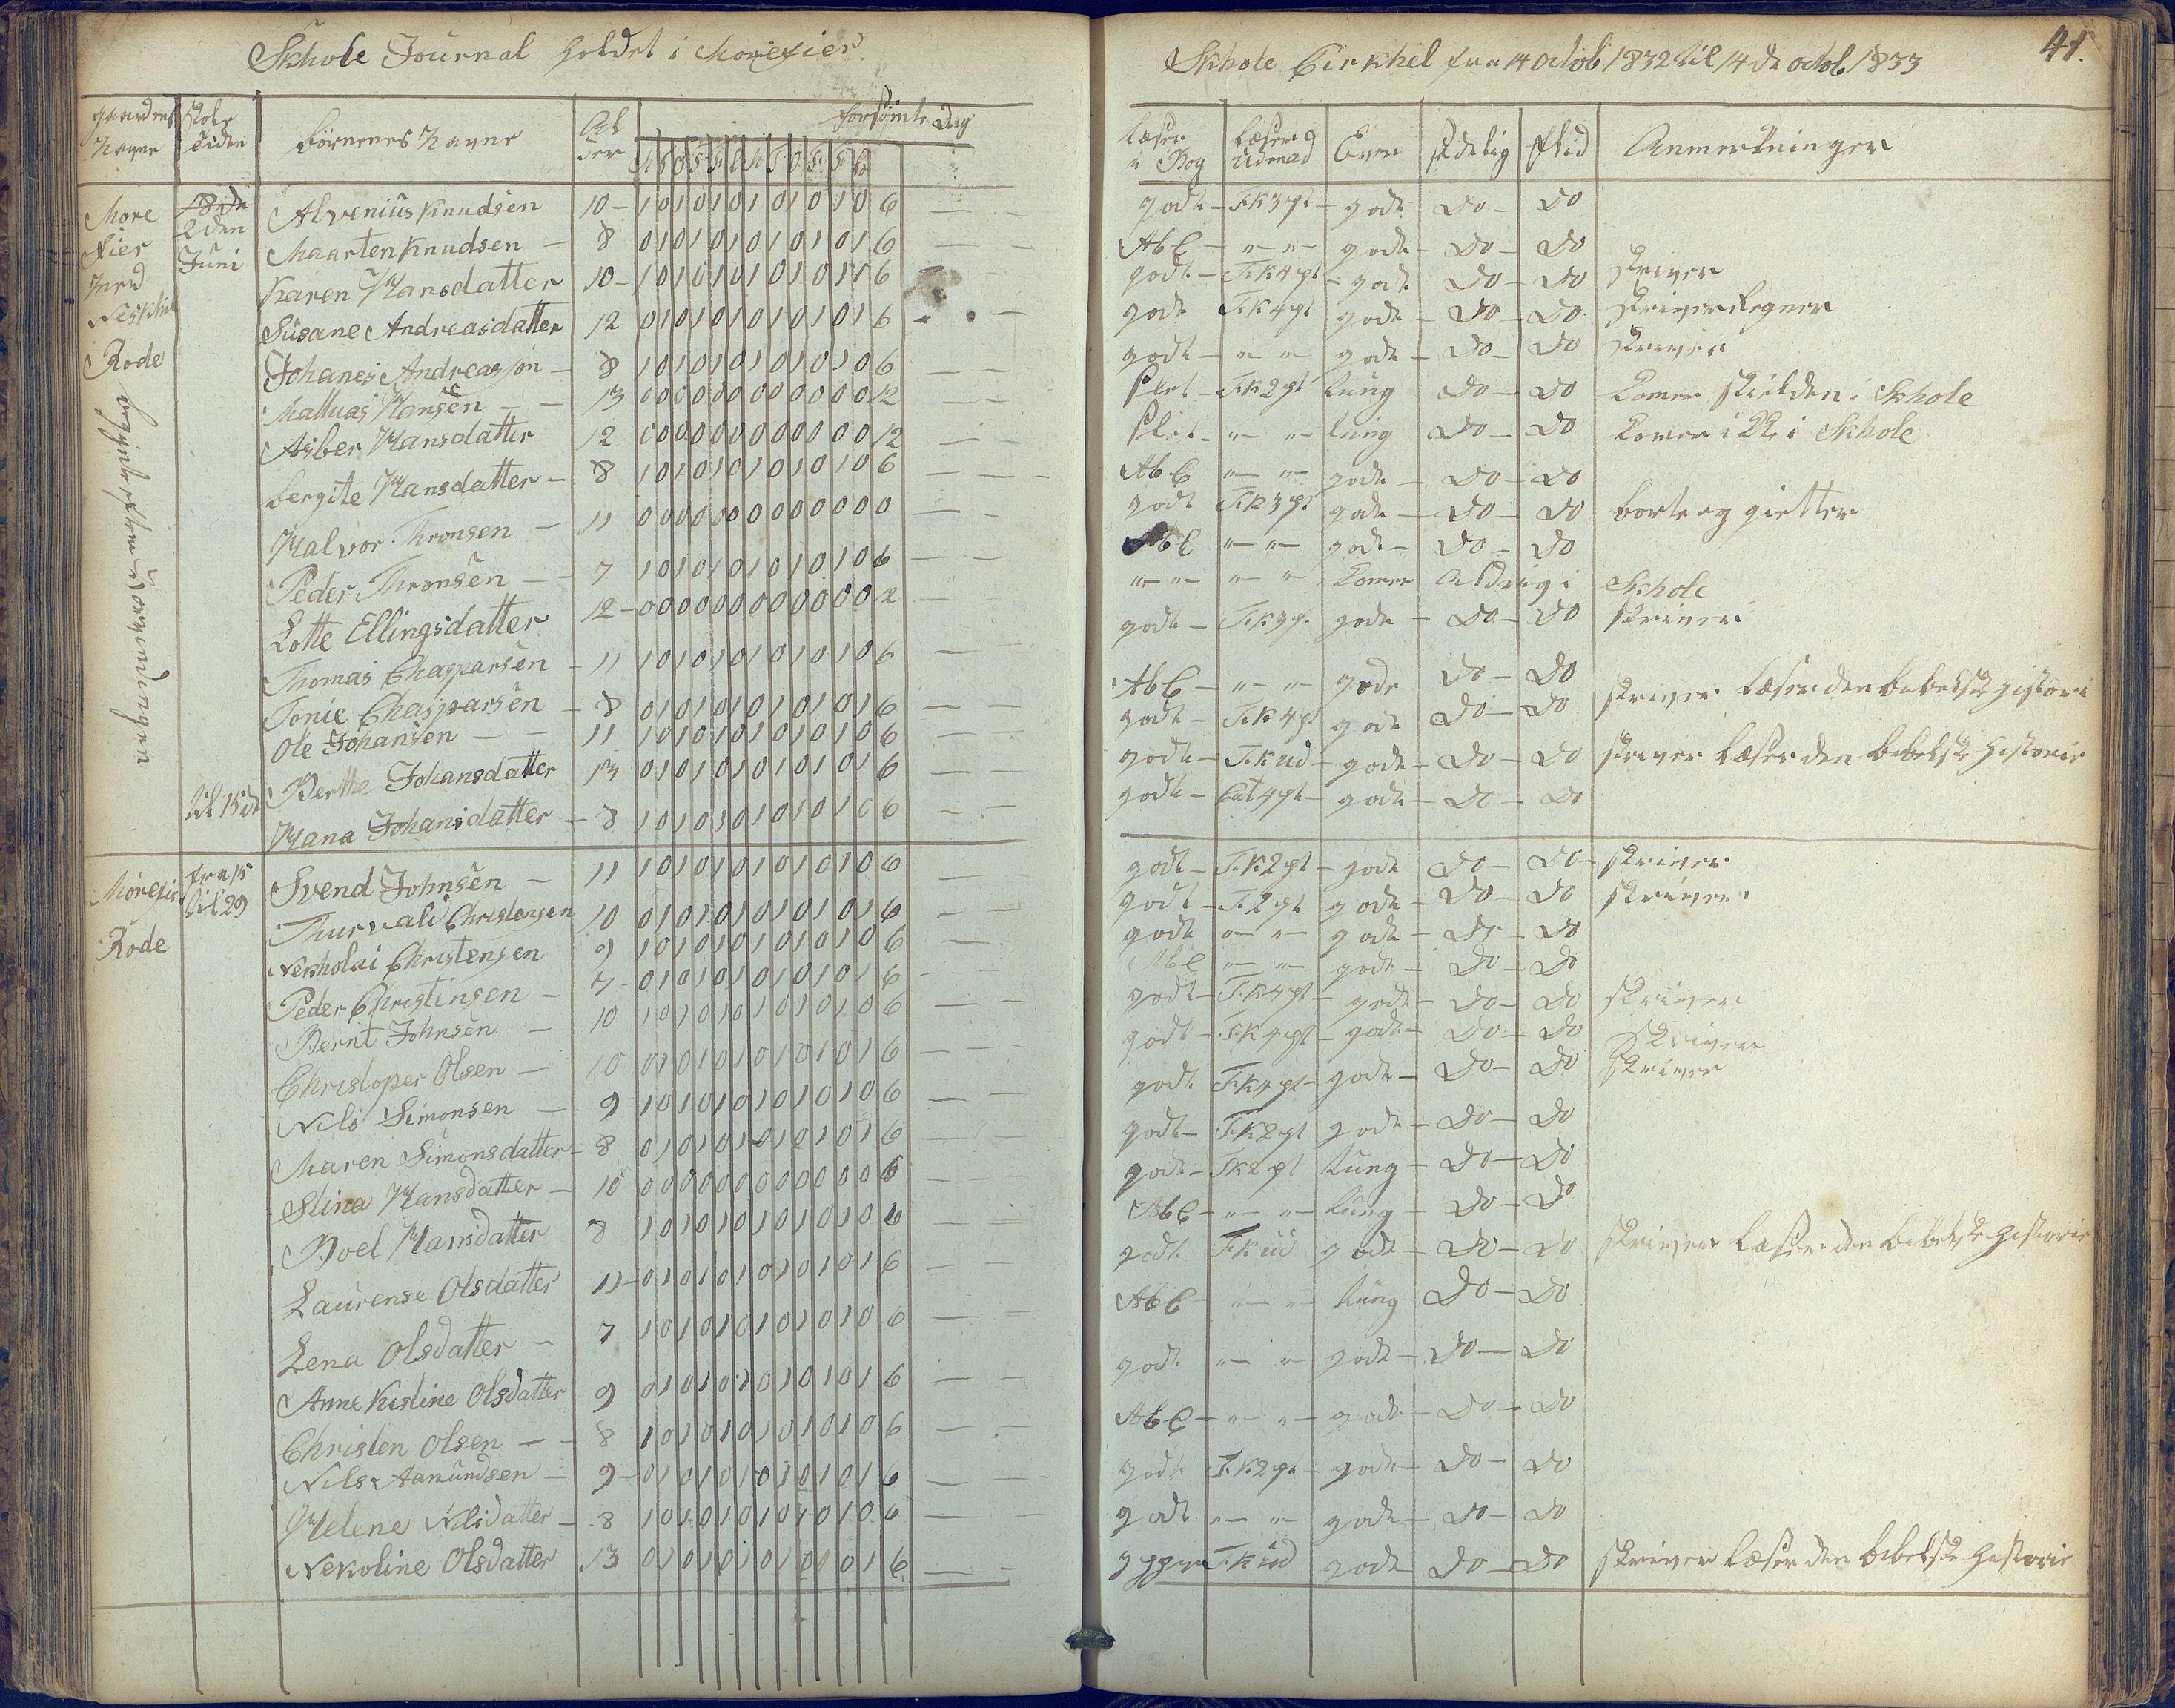 Skhole Journal holdet i Morefier
Skhole Cirkhel fra 14 Octob 1832 til 14 de octob 1833
41.
gaardens Navne
Skole Tiden
børnenes Navne
Al der
forsømte Dag
læser i Bog
læser Udenad
Evner
sædelig
flid
Anmerkninger
More fier med Neskhil Rode
2 den Juni
Alvenius Knudsen 10 1 0 1 0 1 0 1 0 1 0 1 0 6 godt T.K 3 pt gode Do Do
Maarten Knudsen 8 0 1 0 1 0 1 0 1 0 1 0 1 6 AbC " " gode Do Do
Karen Hansdatter 10 1 0 1 0 1 0 1 0 1 0 1 6 godt T.K 4 pt gode Do Do skriver
Susane Andreasdatter 12 0 1 0 1 0 1 0 1 0 1 0 1 6 godt T.K 4 pt gode Do Do skriver Regner
Johanes Andreassøn 8 1 0 1 0 1 0 1 0 1 0 1 0 6 godt " " gode Do Do skriver
Mathias Hansen 13 0 0 0 0 0 0 0 0 0 0 0 0 12 slet T.K 2 pt tung Do Do Komer sielden i Skhole
Asber Hansdatter 12 0 0 0 0 0 0 0 0 0 0 0 0 12 slet " " tung Do Do Komer ikke i Skhole
bergite Hansdatter 8 1 0 1 0 1 0 1 0 1 0 1 0 6 AbC " " gode Do Do
Halvor Thronsen 11 0 0 0 0 0 0 0 0 0 0 0 0 godt T.K 3 pt gode Do Do borte og gietter
Peder Thronsen 7 1 0 1 0 1 0 1 0 1 0 1 0 6 AbC " " gode Do Do
Lotte Ellingsdatter 12 0 0 0 0 0 0 0 0 0 0 0 0 12 " " " " Komer Aldrig i Skhole
Thomas Chasparsen 11 1 0 1 0 1 0 1 0 1 0 1 0 6 godt T.K 3 pt gode Do Do skriver
Tonie Chasparsen 8 0 1 0 1 0 1 0 1 0 1 0 1 6 AbC " " gode Do Do
Ole Johansen 11 1 0 1 0 1 0 1 0 1 0 1 0 6 godt T.K 4 pt gode Do Do skriver læser den bebelske histori
Berthe Johansdatter 13 0 1 0 1 0 1 0 1 0 1 0 1 6 godt T.K ud gode Do Do skriver læser den bebelske historie
til 15 de
Hana Johansdatter 8 1 0 1 0 1 0 1 0 1 0 1 0 6 godt Cat 4 pt gode Do Do
Morefier Rode
fra 15 til 29
Svend Johnsen 11 1 0 1 0 1 0 1 0 1 0 1 0 6 godt T.K 2 pt gode Do Do skriver
Thurvali Christensen 10 0 1 0 1 0 1 0 1 0 1 0 1 6 godt T. 2 pt gode Do Do skriver
Nekholai Christensen 9 1 0 1 0 1 0 1 0 1 0 1 0 6 godt " " gode Do Do
Peder Christinsen 7 0 1 0 1 0 1 0 1 0 1 0 1 6 AbC " " gode Do Do
Bernt Johnsen 10 1 0 1 0 1 0 1 0 1 0 1 0 6 godt T.K 4 pt gode Do Do skriver
Christoper Olsen 10 0 1 0 1 0 1 0 1 0 1 0 1 6 godt T.K 4 pt gode Do Do skriver
Nils Simonsen 9 1 0 1 0 1 0 1 0 1 0 1 0 6 godt T.K 4 pt gode Do Do skriver
Maren Simonsdatter 8 0 1 0 1 0 1 0 1 0 1 0 1 6 godt T.K 2 pt gode Do Do
Stina Hansdatter 10 0 0 0 0 0 0 0 0 0 0 0 6 godt T.K 2 pt tung Do Do
Boel Hansdatter 8 1 0 1 0 1 0 1 0 1 0 1 0 6 AbC " " tung Do Do
Laurense Olsdatter 11 0 1 0 1 0 1 0 1 0 1 0 1 6 godt T.K ud gode Do Do skriver læser den bibelske historie
Lena Olsdatter 7 1 0 1 0 1 0 1 0 1 0 1 0 6 AbC " " tung Do Do
Anne Kistine Olsdatter 9 0 1 0 1 0 1 0 1 0 1 0 1 6 godt " " gode Do Do
Christen Olsen 8 1 0 1 0 1 0 1 0 1 0 1 0 6 AbC " " gode Do Do
Nils Aamundsen 9 0 1 0 1 0 1 0 1 0 1 0 1 6 godt T.K 2 pt gode Do Do
Helene Nilsdatter 8 1 0 1 0 1 0 1 0 1 0 1 0 6 godt " " gode Do Do
Nekoline Olsdatter 13 0 1 0 1 0 1 0 1 0 1 0 1 6 T.K ud gode Do Do skriver læser den bebelske historie